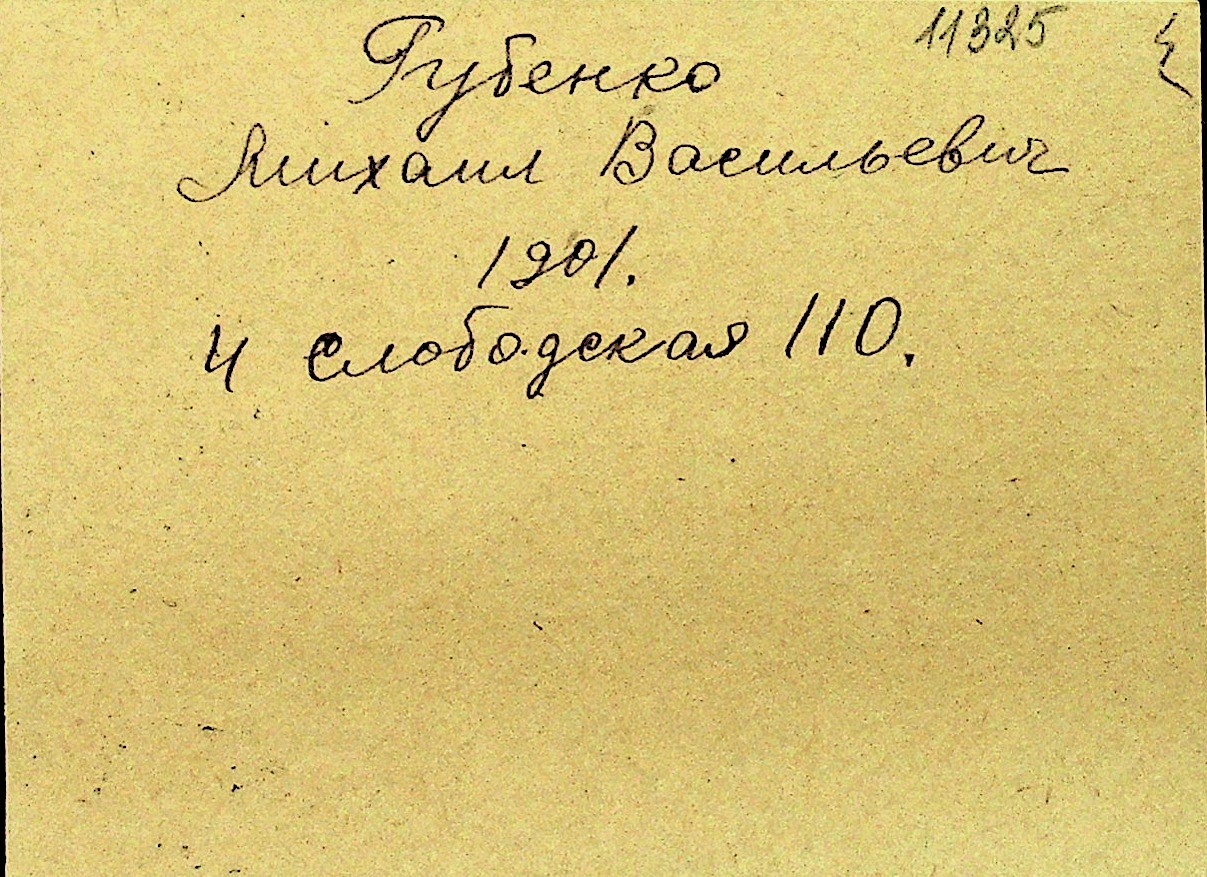 11325
Губенко
Михаил Васильевич
1901.
4 Слободская 110.